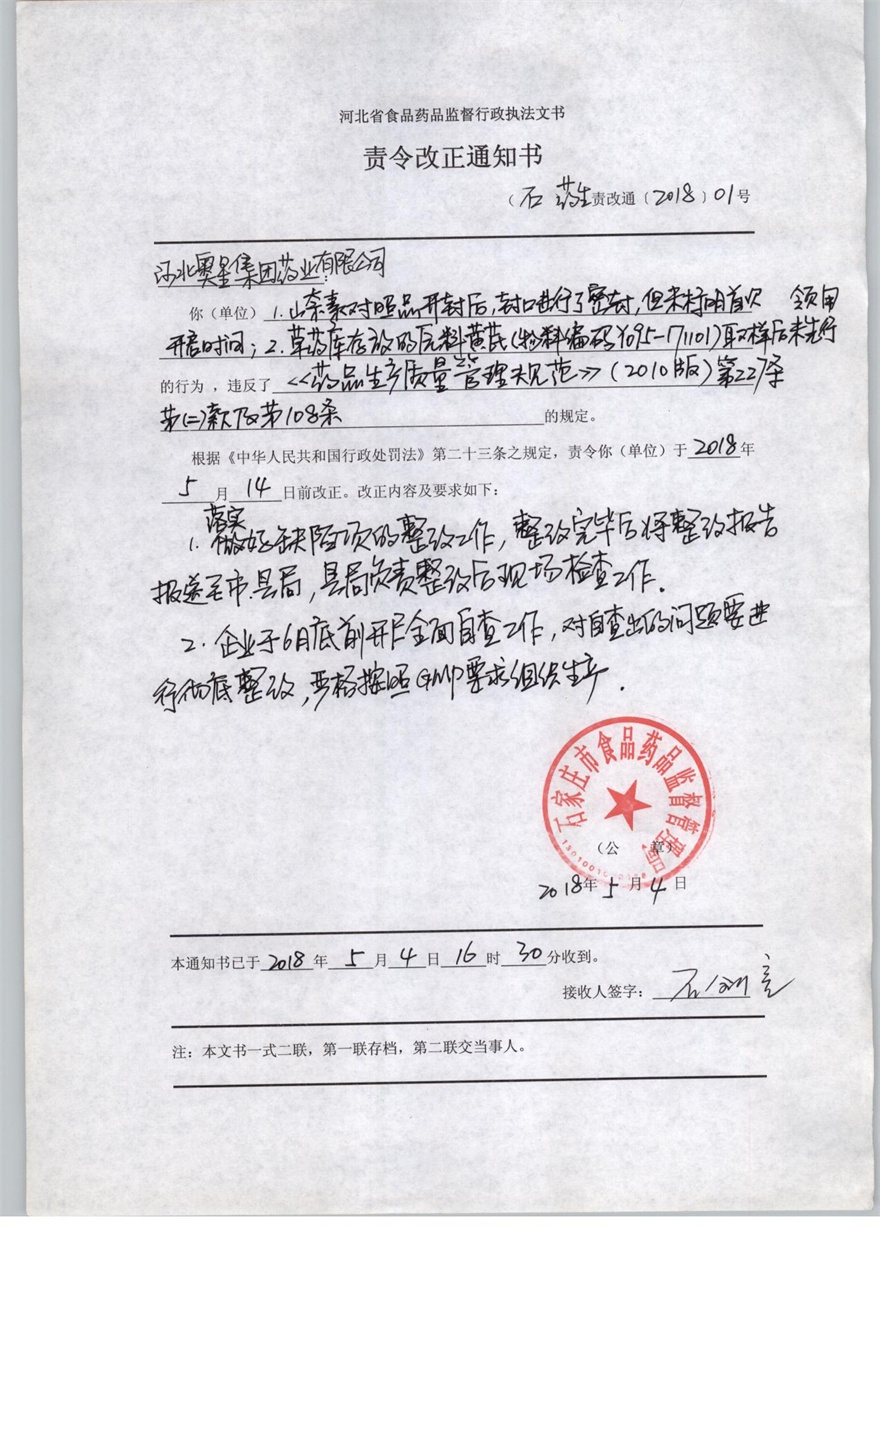 河北省食品药品监督行政执法文书
责令改正通知书
（石 药生责改通〔2018〕01号
河北奥星集团药业有限公司：
你（单位）1.山奈素对照品开封后，封口进行了密封，但未标明首次
开启时间；2.草药库存放的原料黄芪（物料编码Y095-171101）取样后未先行领用
的行为，违反了《药品生产质量管理规范》（2010版）第227条
第(二)款及第108条的规定。
根据《中华人民共和国行政处罚法》第二十三条之规定，责令你（单位）于2018年
5月14日前改正。改正内容及要求如下：
落实
1.做好缺陷项的整改工作，整改完毕后将整改报告
报送至市.县局，县局负责整改后现场检查工作.
2.企业于6月底前开展全面自查工作，对自查出的问题要进
行彻底整改，严格按照GMP要求组织生产.
石家庄市食品药品监督管理局
（公 章）
2018年5月4日
本通知书已于2018年5月4日16时30分收到。
接收人签字：
注：本文书一式二联，第一联存档，第二联交当事人。